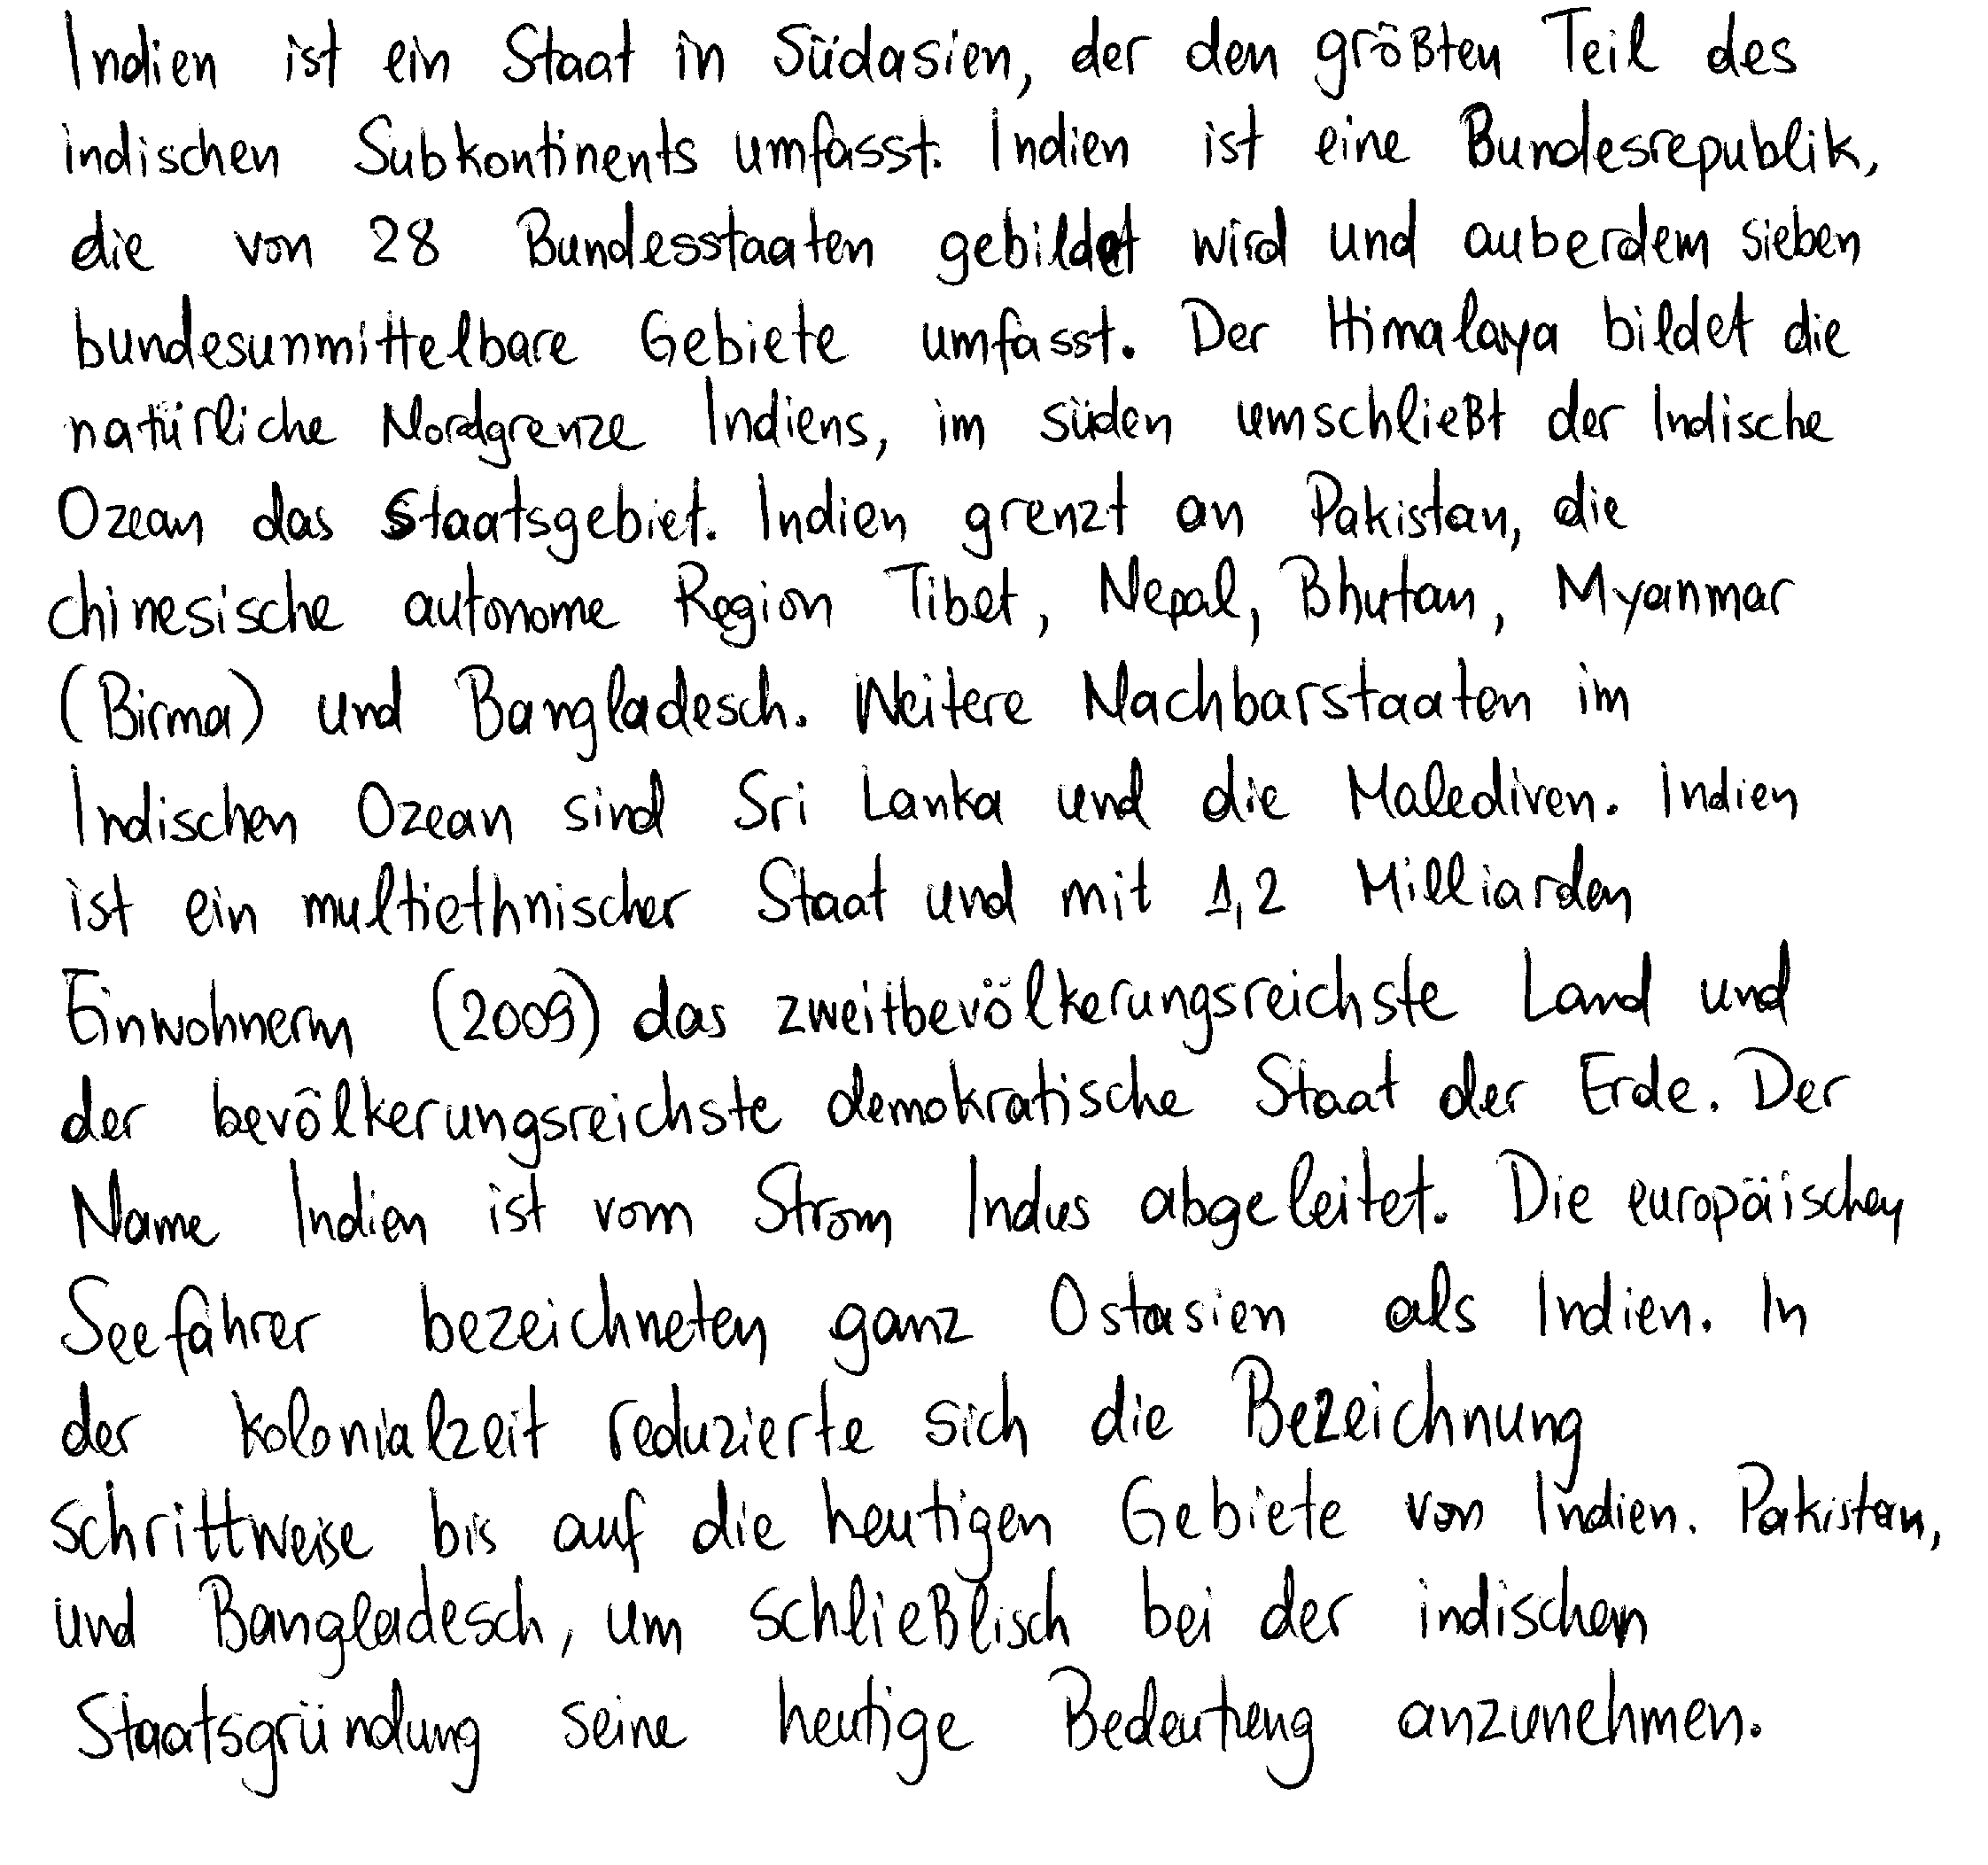 Indien ist ein Staat in Südasien, der den größten Teil des
indischen Subkontinents umfasst. Indien ist eine Bundesrepublik,
die von 28 Bundesstaaten gebildet wird und auberdem sieben
bundesunmittelbare Gebiete umfasst. Der Himalaya bildet die
natürliche Nordgrenze Indiens, im süden umschließt der Indische
Ozean das Staatsgebiet. Indien grenzt an Pakistan, die
chinesische autonome Region Tibet, Nepal, Bhutan, Myanmar
(Birma) und Bangladesch. Weitere Nachbarstaaten im
Indischen Ozean sind Sri Lanka und die Malediven. Indien
ist ein multiethnischer Staat und mit 1,2 Milliarden
Einwohnerm (2009) das zweitbevölkerungsreichste Land und
der bevölkerungsreichste demokratische Staat der Erde. Der
Name Indien ist vom Strom Indus abgeleitet. Die europäischen
Seefahrer bezeichneten ganz Ostasien als Indien. In
der kolonialzeit reduzierte sich die Bezeichnung
schrittweise bis auf die heutigen Gebiete von Indien. Pakistan,
und Bangladesch, um schließlisch bei der indischen
Staatsgründung seine heutige Bedeutung anzunehmen.